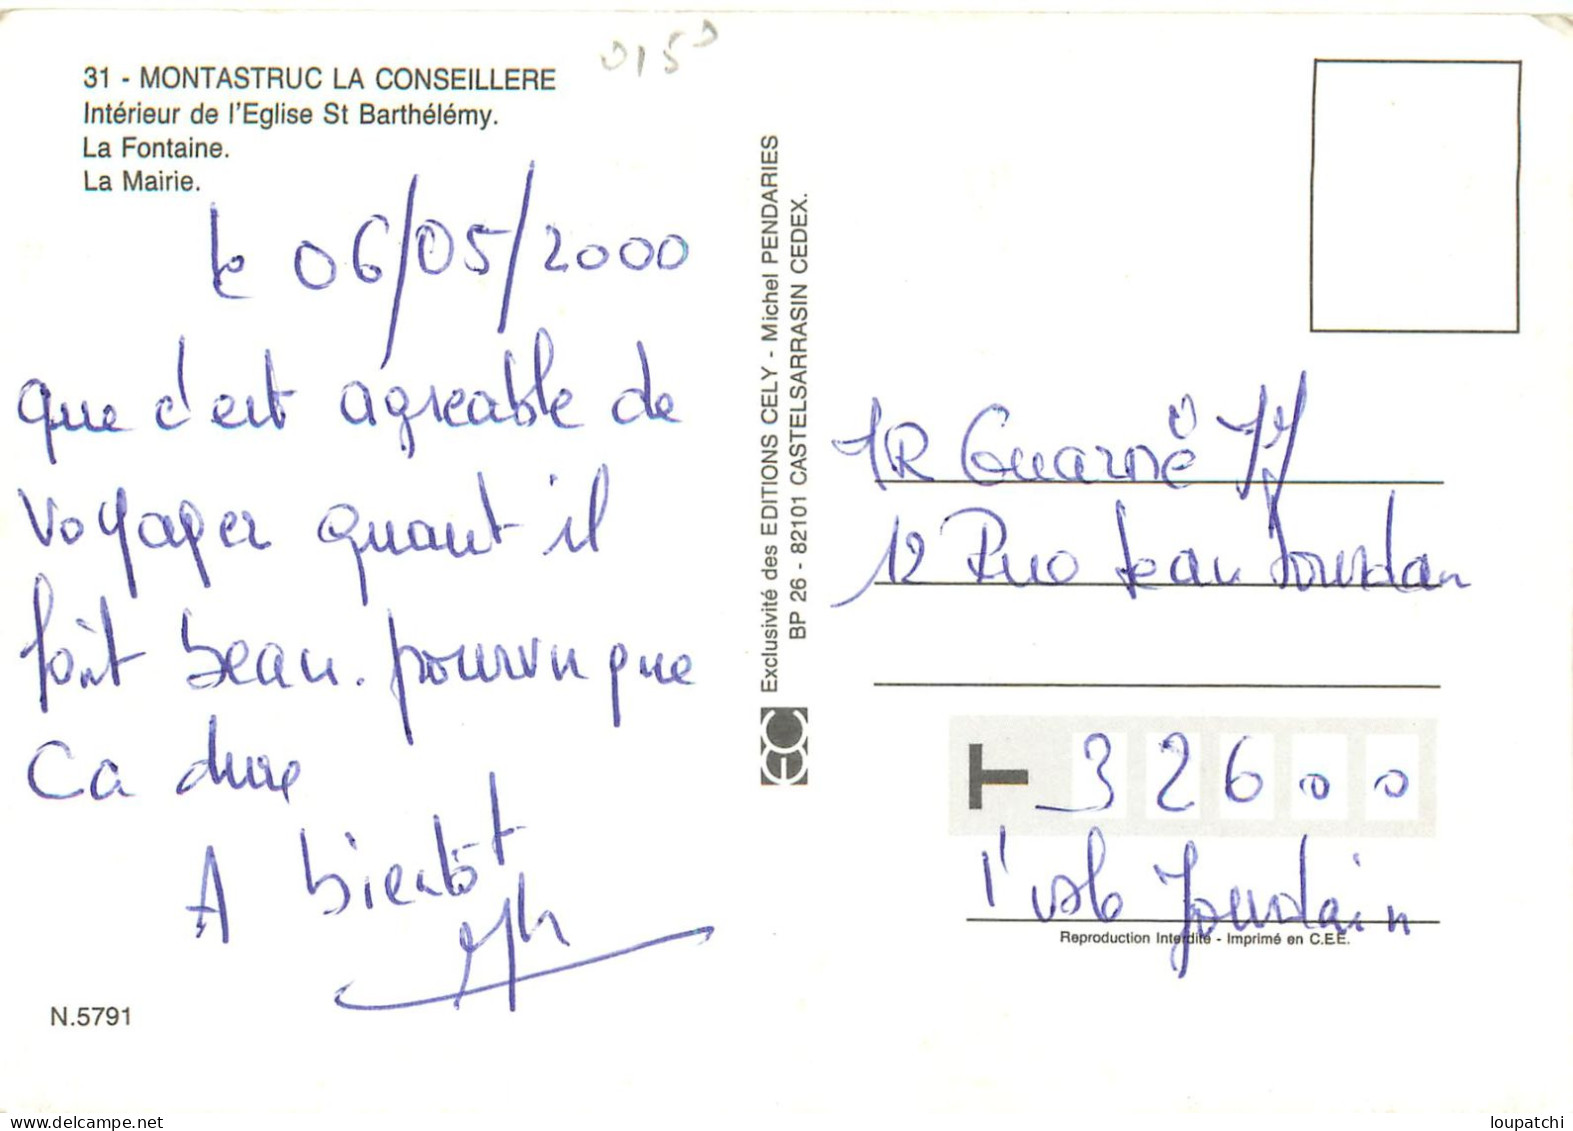 0150
31 - MONTASTRUC LA CONSEILLERE
Intérieur de l'Eglise St Barthélémy.
La Fontaine.
La Mairie.
le 06/05/2000
que c'est agreable de
voyager quant il
fait beau. pourvu que
Ca dure
A bientôt
N.5791
Exclusivité des EDITIONS CELY - Michel PENDARIES
BP 26 - 82101 CASTELSARRASIN CEDEX.
MR Guarné
12 Rue Jean Jourdan
32600
l'isle Jourdain
Reproduction Interdite - Imprimé en C.E.E.
www.delcampe.net
loupatchi